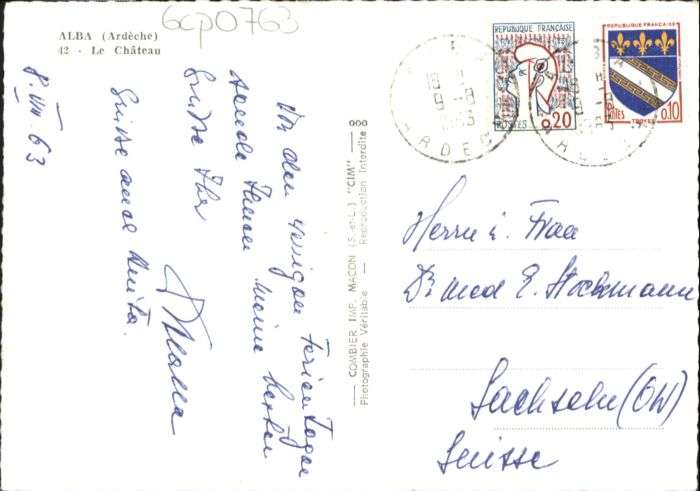 ALBA (Ardèche)
42 - Le Château
6cp0763
8. VIII 63
Von den wenigen Ferientagen
sende Ihnen meine besten
Grüsse Ihr
Grüsse auch Anita.
COMBIER IMP. MACON (S.-et-L.) "CIM"
Photographie Véritable — Reproduction Interdite
REPUBLIQUE FRANÇAISE
POSTES 0,20
REPUBLIQUE FRANÇAISE
POSTES 0,10
TROYES
ARDECHE
Herrn u. Frau
Dr med E. Stockmann
Sachseln (OW)
Suisse